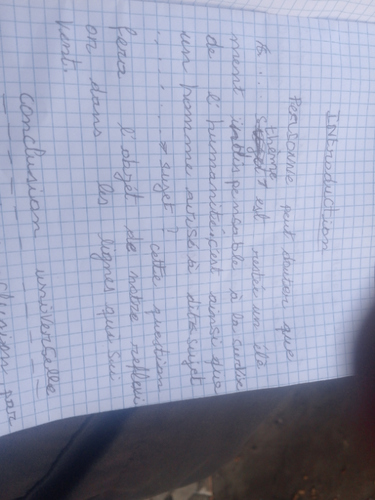 INtroduction
Personne peut douter que
A . . . . thème est resté un élé
ment indispensable à la survie
de l'humanité, c'est ainsi que
un homme aussi à dit: sujet
. . . . . . . sujet? cette question
fera l'objet de notre réflexi
on dans les lignes qui sui
vent.
Conclusion universelle